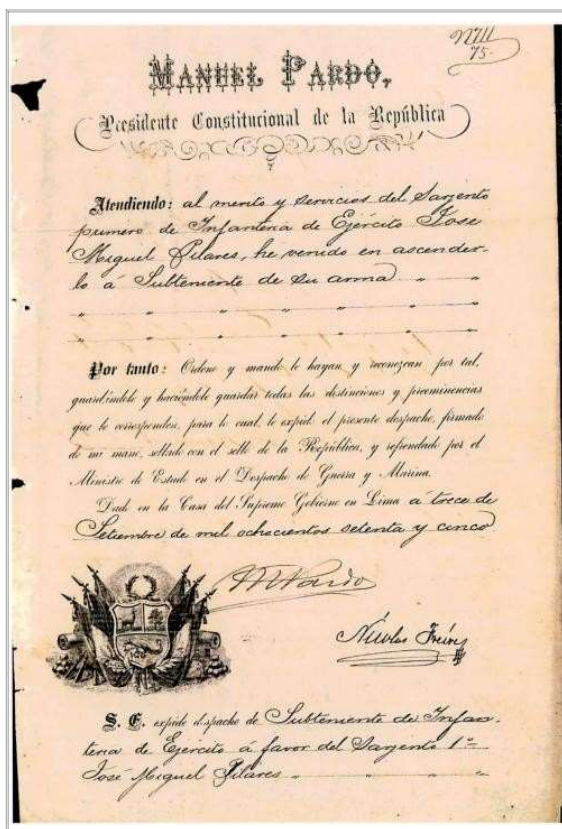 75.
MANUEL PARDO,
Presidente Constitucional de la República
Atendiendo: al merito y servicios del Sargento
primero de Infanteria de Ejército José
Miguel Pilares, he venido en ascender-
lo á Subteniente de su arma " "
" " " " " "
" " " " " "
Por tanto: Ordeno y mando le hayan y reconozcan por tal,
guardándole y haciéndole guardar todas las distinciones y preeminencias
que le corresponden, para lo cual, le expido el presente despacho, firmado
de mi mano, sellado con el sello de la República, y refrendado por el
Ministro de Estado en el Despacho de Guerra y Marina.
Dado en la Casa del Supremo Gobierno en Lima á trece de
Setiembre de mil ochocientos setenta y cinco
MPardo
Nicolas Freire
S. E. expide despacho de Subteniente de Infan-
teria de Ejercito á favor del Sargento 1º
José Miguel Pilares " " "